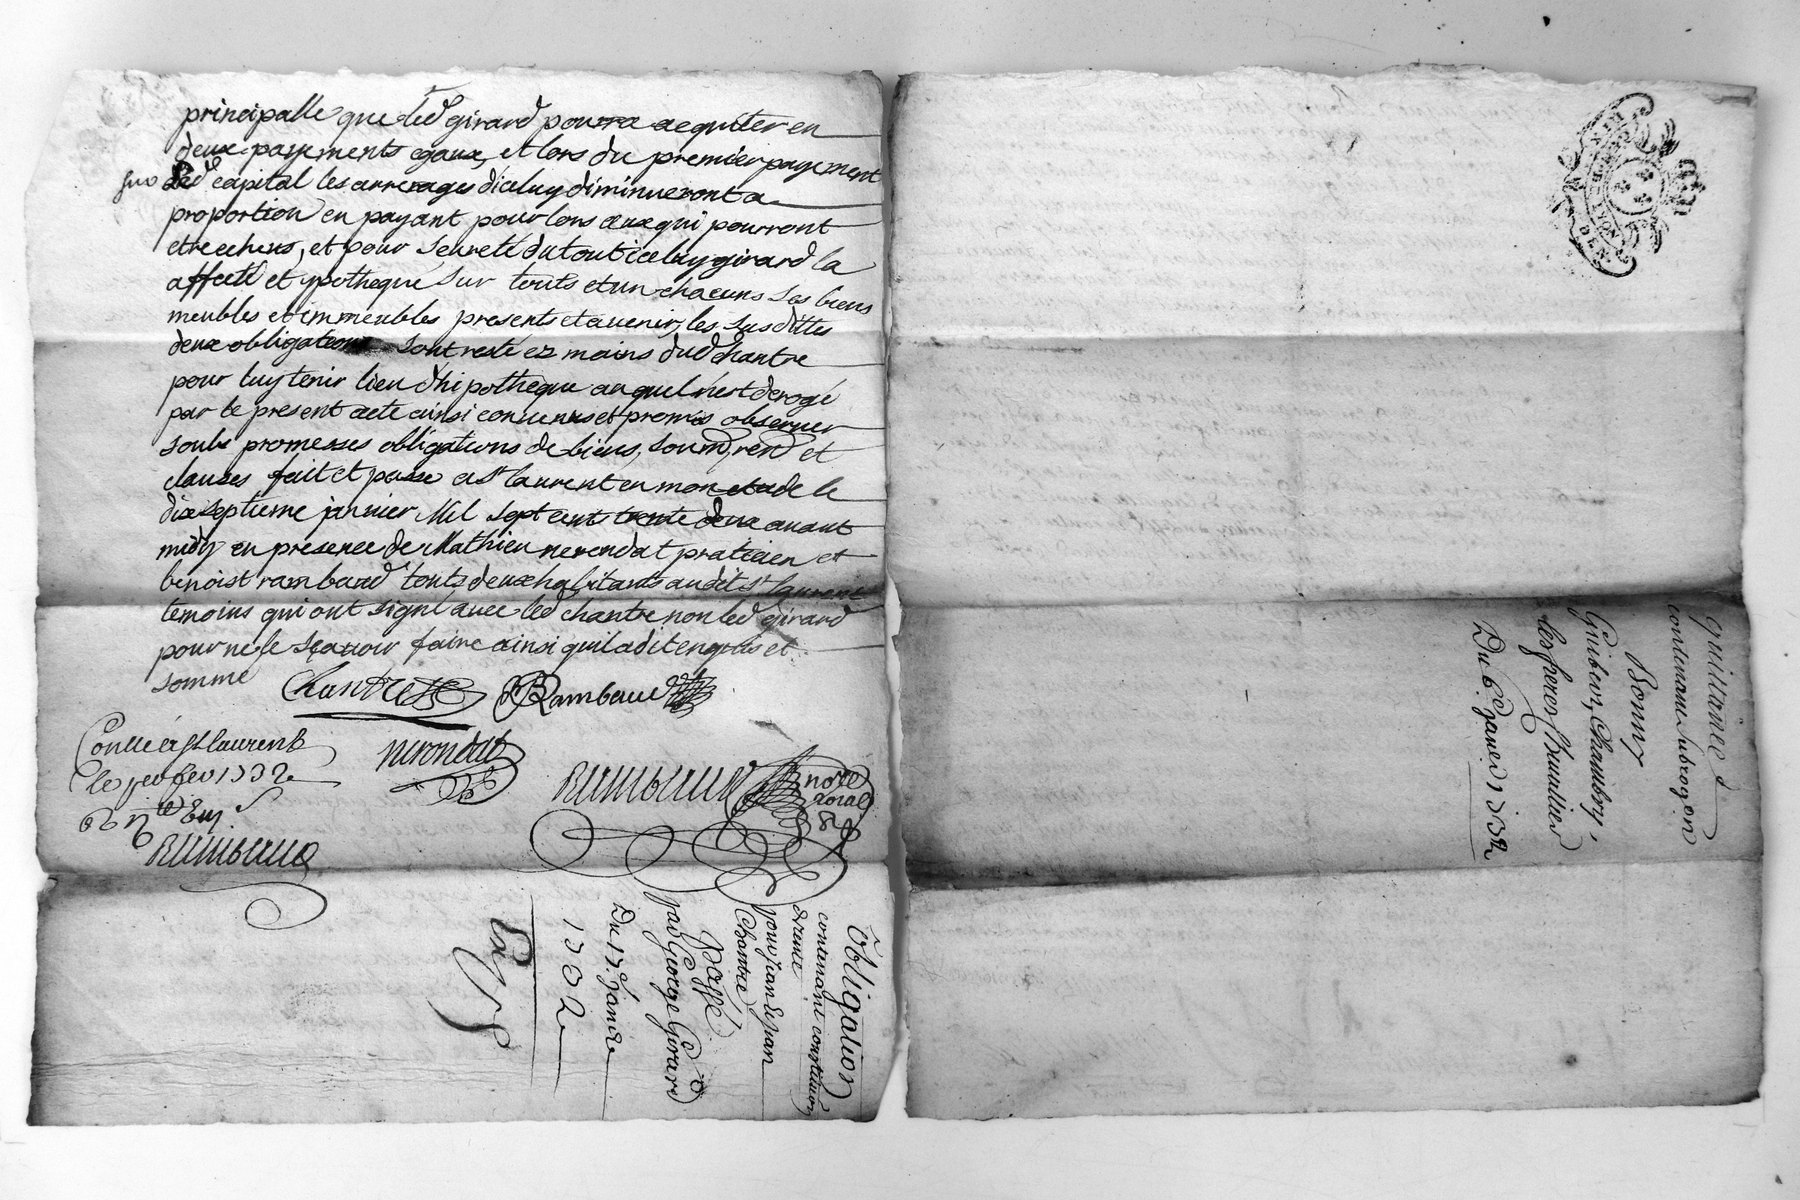 principalle que led girard pourra acquiter en
deux payements egaux, et lors du premier payement
dud capital les arrerages diceluy diminueront a
proportion en payant pour lors ceux qui pourront
etre echus, et pour seureté du tout iceluy girard la
affecté et ypothequé sur touts et un chacuns ses biens
meubles et immeubles presents et avenir, les susdittes
deux obligations sont resté ez mains dud chantre
pour luy tenir lieu dhipotheque auquel nest derogé
par le present acte ainsi convenus et promis observer
soubs promesses obligations de biens, soum, ren et
clauses fait et passé a st laurent en mon etude le
dix septieme janvier Mil sept cents trente deux avant
midy en presence de Mathieu nerondat praticien et
benoist rambaud touts deux habitants audit st laurent
temoins qui ont signé avec led chantre non led girard
pour ne le sçavoir faire ainsi quil a dit enquis et
sommé
Chantre
B Rambaud
nerondat
Rambaud nore
roial
Conllé a st laurent
le fev 1732
Rambaud
Obligation
contenant constitution
de rente
pour Jean
Chantre
passé
par George Girard
Du 17e janer
1732
GENER DE LYON
quittance
contenant subrogation
Bonny
Guibour, Chambry,
les freres
Du 6e janer 1732